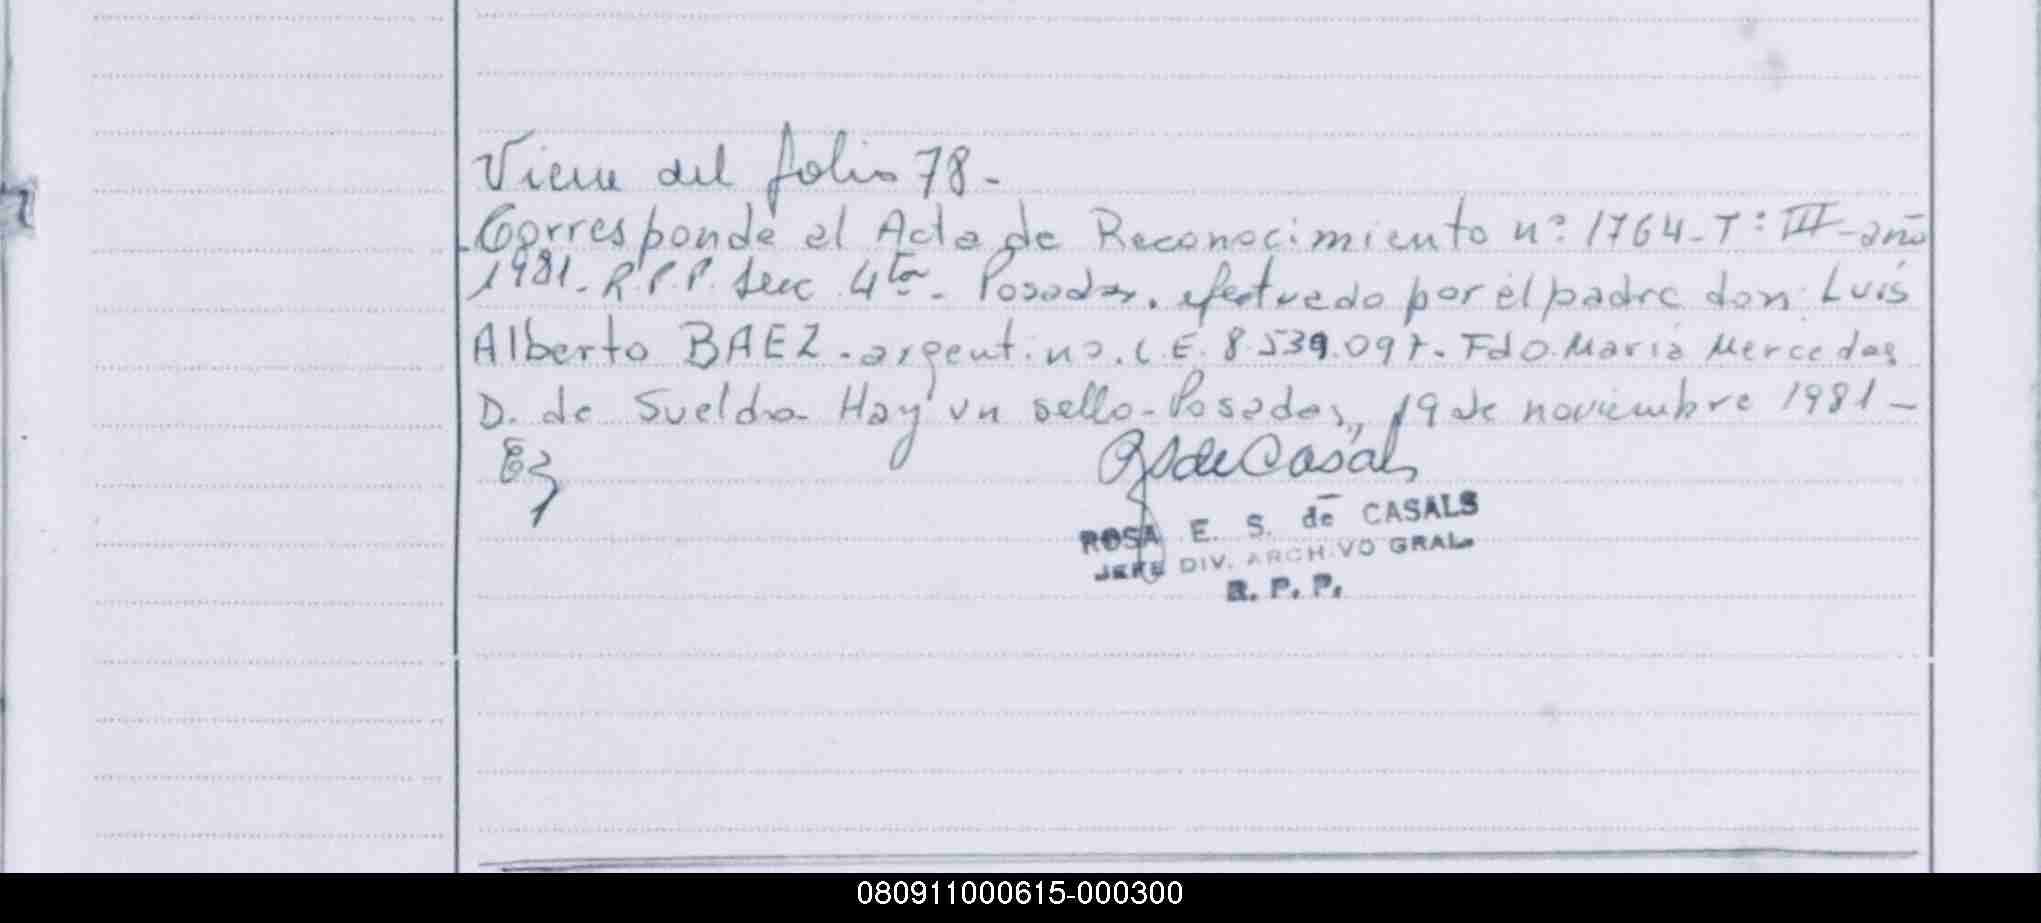 Viene del folio 78-
Corresponde al Acta de Reconocimiento nº 1764-Tº III-año
1981- R.P.P. Secc 4ta- Posadas. efectuado por el padre don Luis
Alberto BAEZ-argentino. L.E. 8.539.097- Fdo. María Mercedes
D. de Sueldo- Hay un sello-Posadas, 19 de noviembre 1981-
RSdeCasals
ROSA E. S. de CASALS
JEFE DIV. ARCHIVO GRAL.
R. P. P.
080911000615-000300